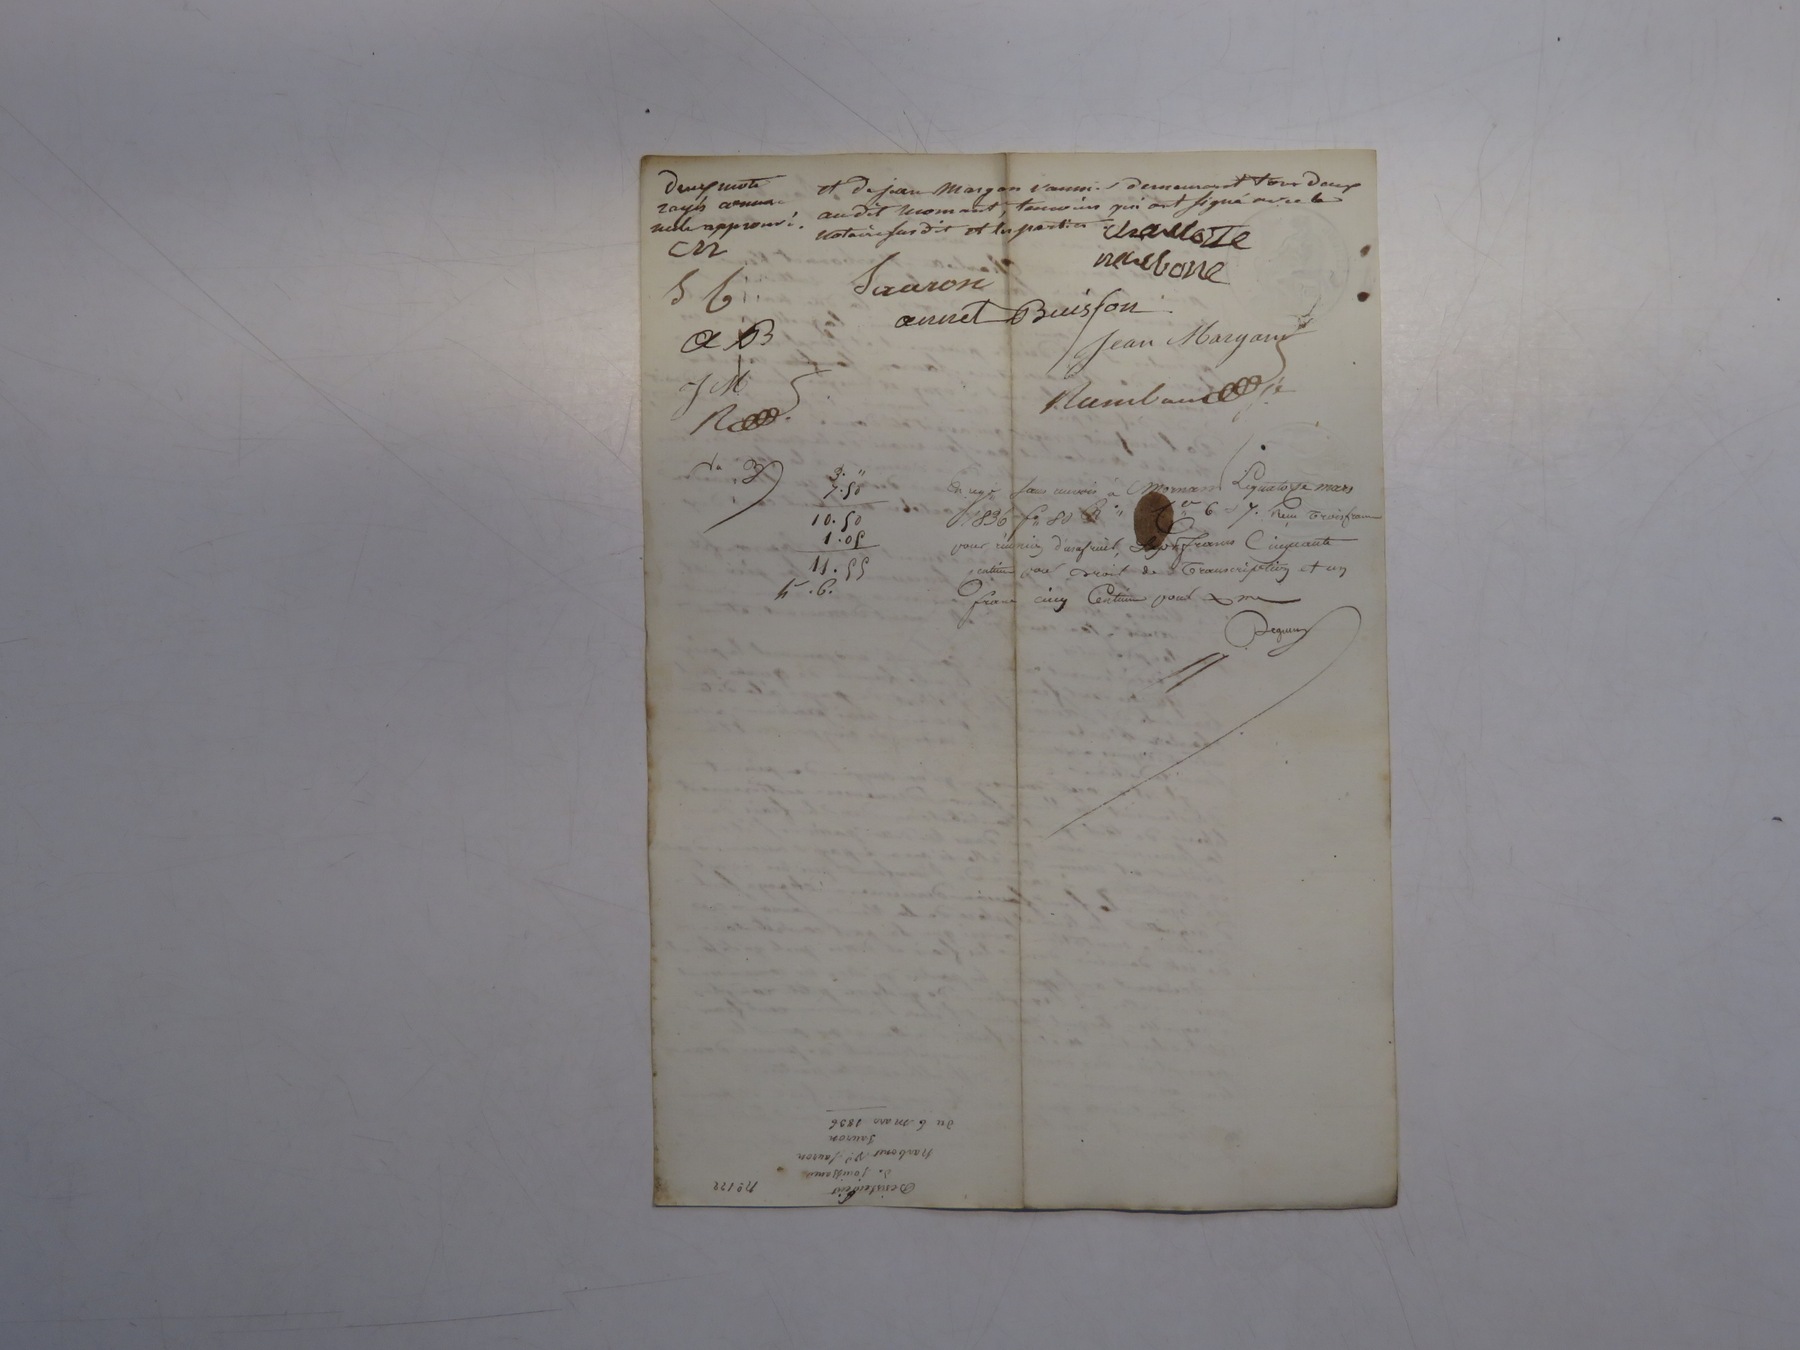 Deux mots
rayés comme
nuls approuvé.
CN
S b.
A B
J M
R
et de Jean Morgan vannier demeurant tous deux
audit Mornant, temoins qui ont signé avec le
notaire susdit et les parties
charlotte
narbone
Sauron
annet Buisson
Jean Morgan
Raimbaud
3. "
7.50
10.50
1.05
11.55
Enregé sans renvois à Mornant Le quatorze mars
1836 fo 80 Co 6 et 7. Reçu trois francs
pour réunion d'usufruit, sept francs Cinquante
centimes pour droit de Transcription et un
franc cinq Centimes pour xme
No 122
Desistement
de jouissance
Narbone Ve Sauron
Sauron
du 6 mars 1836